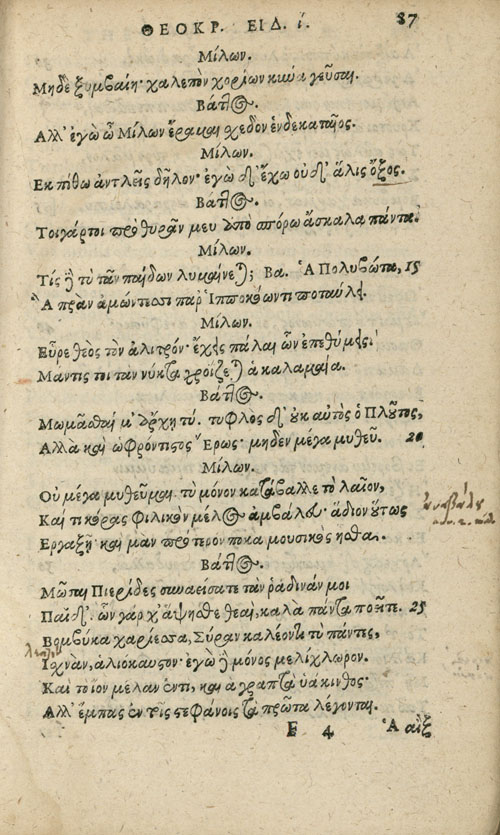 ΘΕΟΚΡ. ΕΙΔ. ί. 87
Μίλων.
Μηδὲ ξυμβαίη· χαλεπὸν χορίων κύνα γεῦσαι.
Βάττος.
Αλλ' ἐγὼ ὦ Μίλων ἔραμαι σχεδὸν ἑνδεκαταῖος.
Μίλων.
Εκ πίθω ἀντλεῖς δῆλον· ἐγὼ δ' ἔχω οὐδ' ἅλις ὄξος.
Βάττος.
Τοιγάρτοι πρὸ θυρᾶν μευ ἀπὸ σπόρω ἄσκαλα πάντα.
Μίλων.
Τίς δὲ τὺ τᾶν παίδων λυμαίνεται; Βα. Ἁ Πολυβώτα, 15
Ἃ πρὰν ἀμώντεσσι παρ' Ἱπποκόωντι ποταύλει.
Μίλων.
Εὗρε θεὸς τὸν ἀλιτρόν· ἔχεις πάλαι ὧν ἐπεθύμεις·
Μάντις τοι τὰν νύκτα χροίξεται ἁ καλαμαία.
Βάττος.
Μωμᾶσθαί μ' ἄρχῃ τύ. τυφλὸς δ' οὐκ αὐτὸς ὁ Πλοῦτος,
Αλλὰ καὶ ὡφρόντιστος Ἔρως· μηδὲν μέγα μυθεῦ. 20
Μίλων.
Οὐ μέγα μυθεῦμαι· τὺ μόνον κατάβαλλε τὸ λαῖον,
Καί τι κόρας φιλικὸν μέλος ἀμβάλευ· ἅδιον οὕτως
Εργαξῇ· καὶ μὰν πρότερόν ποκα μουσικὸς ἦσθα.
Βάττος.
Μῶσαι Πιερίδες συναείσατε τὰν ῥαδινάν μοι
Παῖδ'· ὧν γάρ χ' ἅψησθε θεαί, καλὰ πάντα ποιῆτε. 25
Βομβύκα χαρίεσσα, Σύραν καλέοντι τὺ πάντες,
Ισχνάν, ἁλιόκαυστον· ἐγὼ δὲ μόνος μελίχλωρον.
Καὶ τὸ ἴον μέλαν ἐντί, καὶ ἁ γραπτὰ ὑάκινθος·
Αλλ' ἔμπας ἐν τοῖς στεφάνοις τὰ πρῶτα λέγονται.
F 4 Ἁ αἲξ